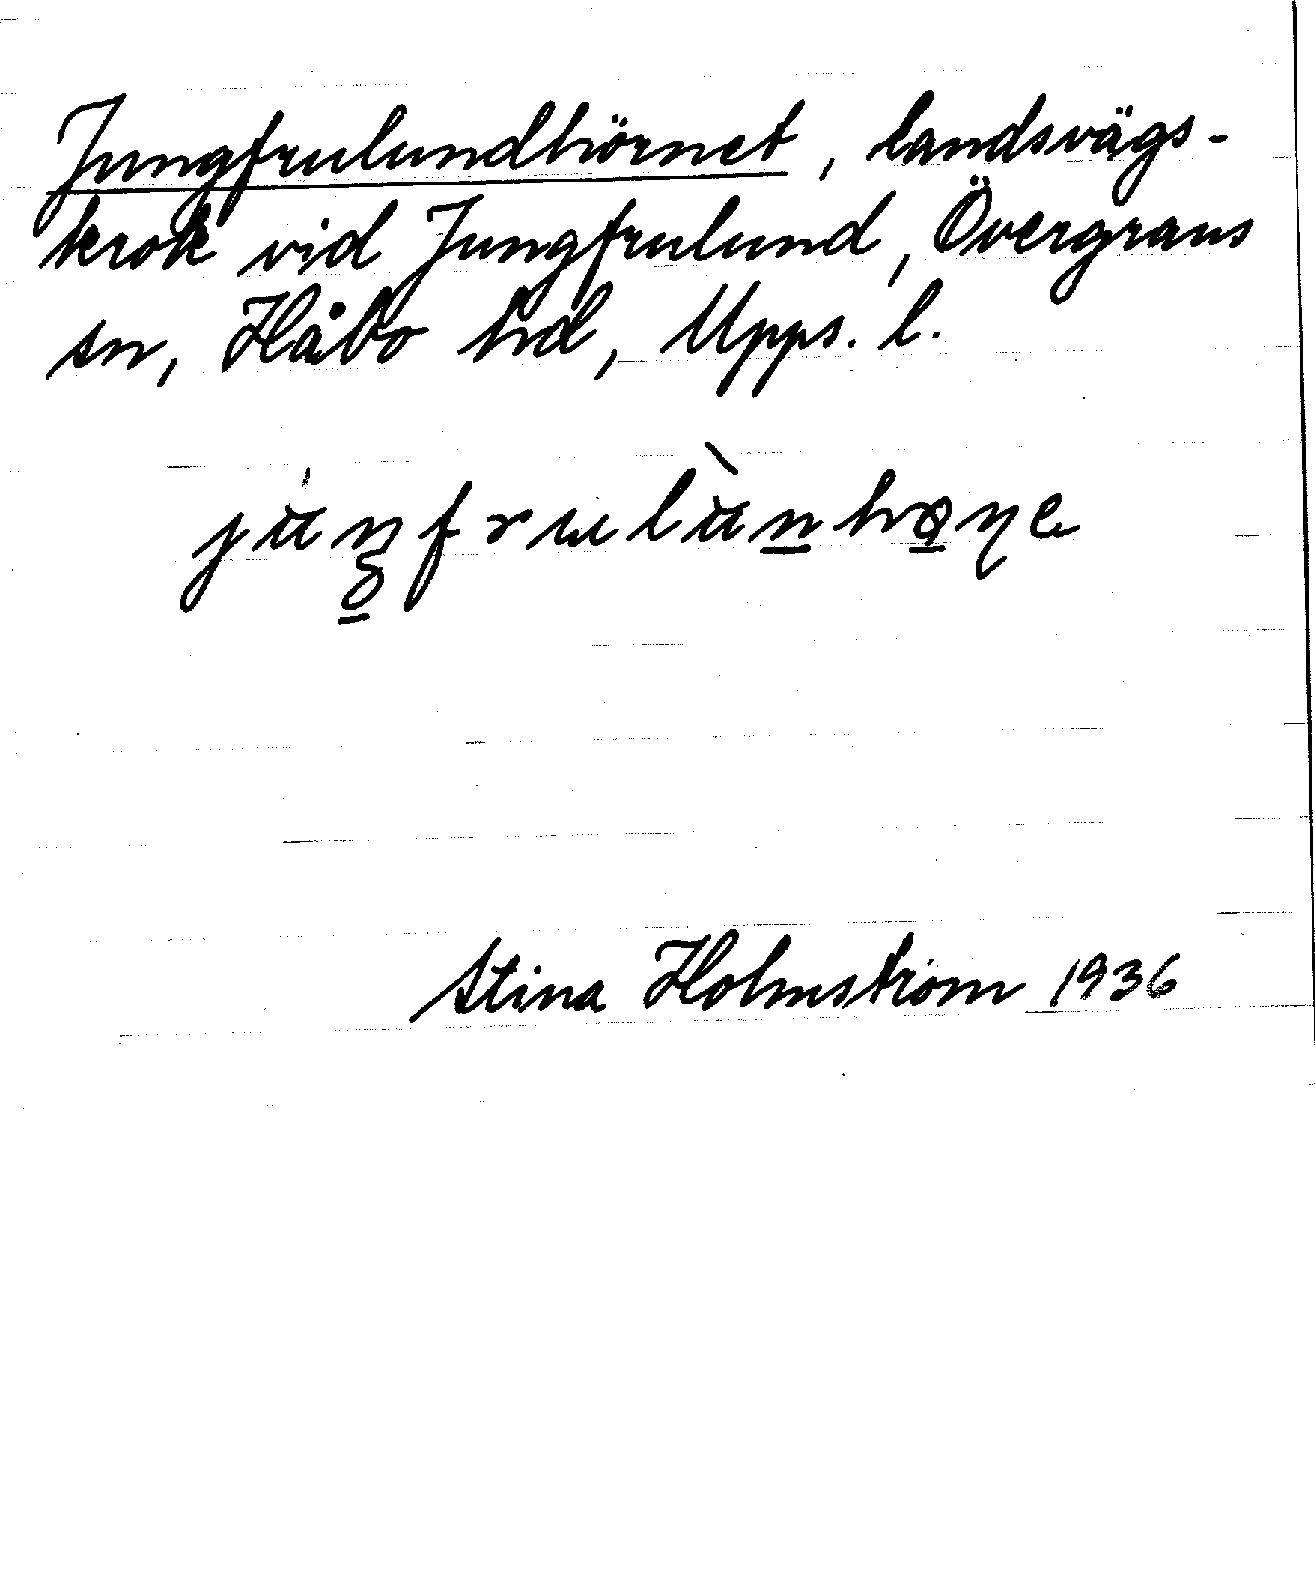 Jungfrulundhörnet, landsvägs-
krok vid Jungfrulund, Övergrans
sn, Håbo hd, Upps. l.
Stina Holmström 1936